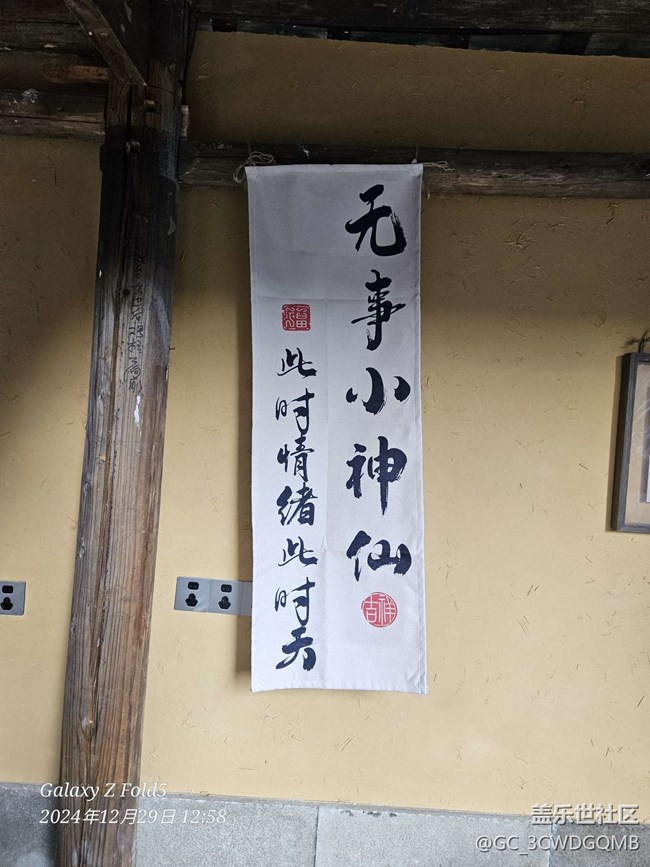 无事小神仙
吉祥
福
此时情绪此时天
Galaxy Z Fold5
2024年12月29日 12:58
盖乐世社区
@GC_3CWDGQMB